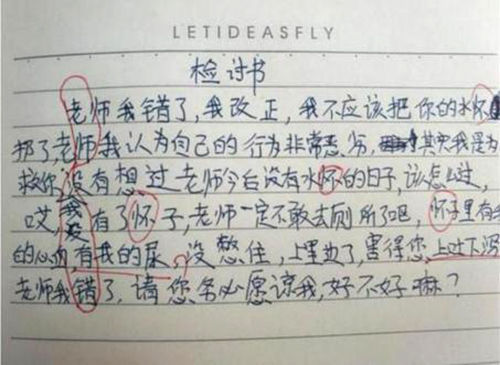 LETIDEASFLY
检讨书
老师我错了,我改正,我不应该把你的水怀
了,老师我认为自己的行为非常恶劣,其实我是为
救你,没有想过老师今后没有水怀的日子,该怎么过,
哎,我没有了怀子,老师一定不敢去厕所了吧,怀子里有我
的心血,有我的尿,没憋住,上里边了,害得您上过下泻
老师我错了,请您务必愿谅我,好不好嘛?